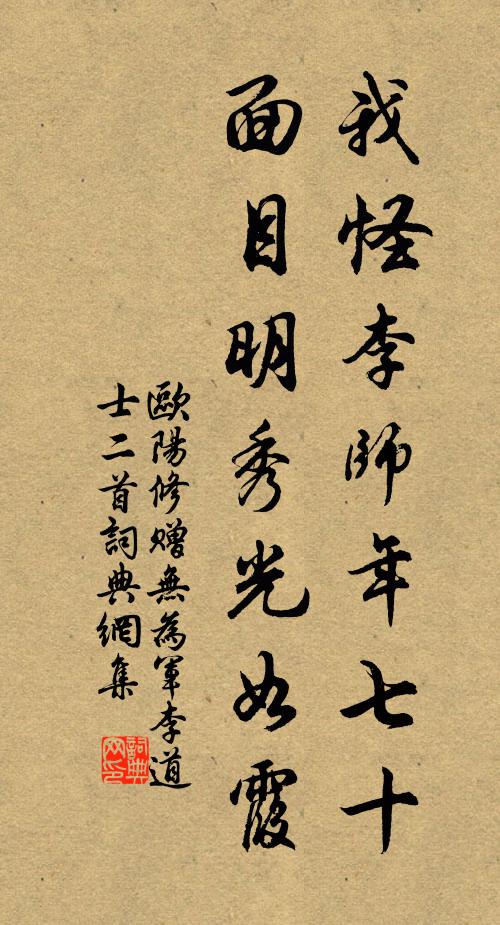 我怪李師年七十
面目明秀光如霞
歐陽修贈無為軍李道
士二首詞典網集
詞典
网印